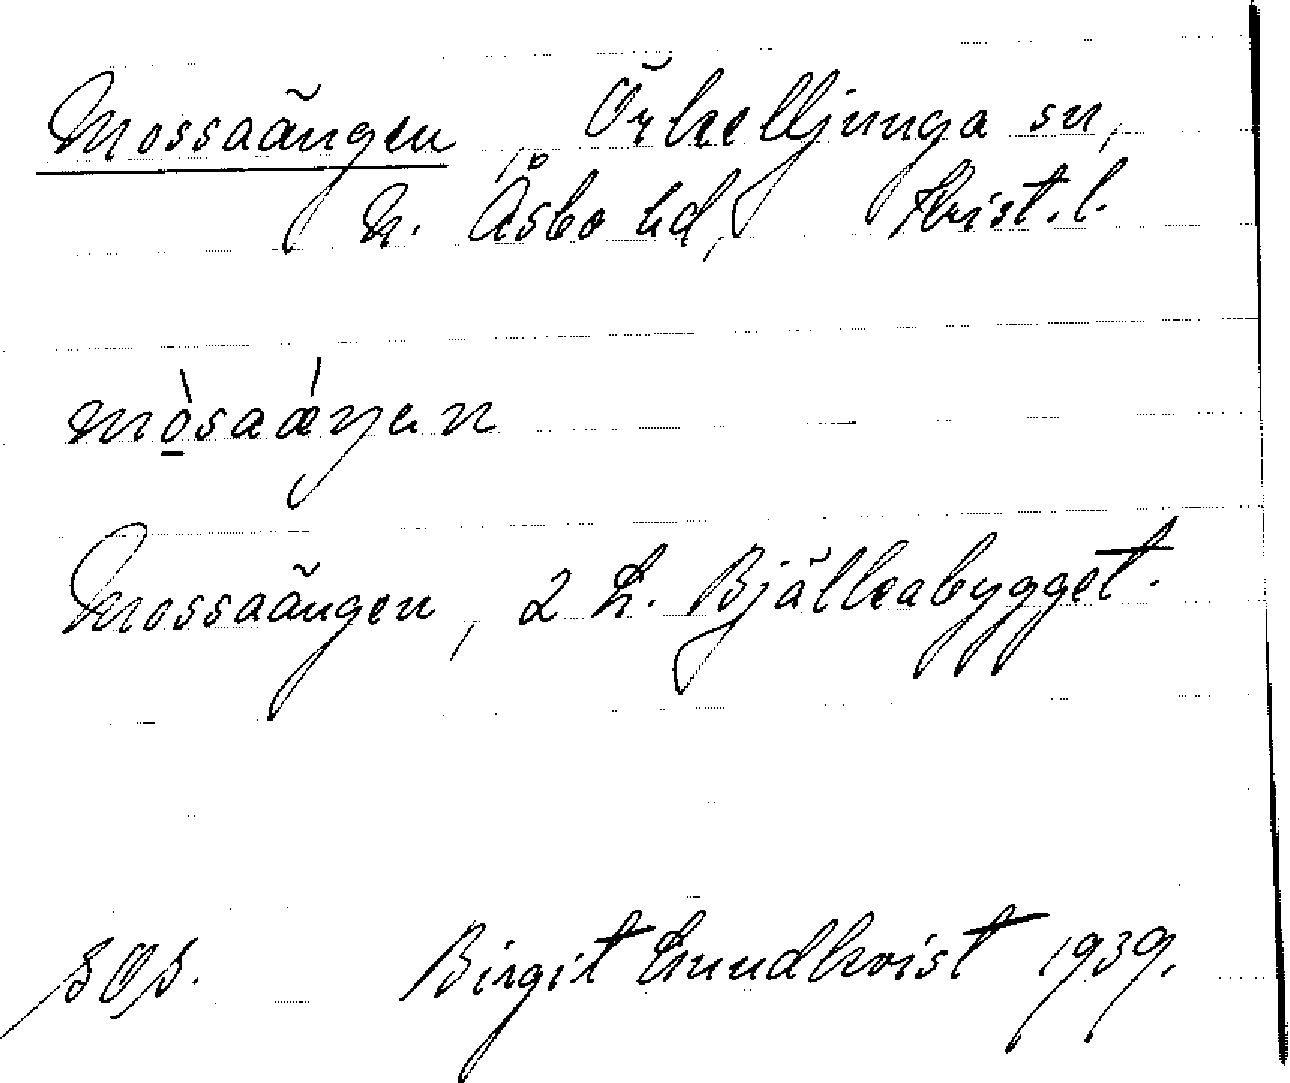 Mossaängen, Örkelljunga sn,
N. Åsbo hd, Krist. l.
mò̱saǽŋen
Mossaängen, 2 L. Bjällerbygget.
SOS. Birgit Lundkvist 1939.